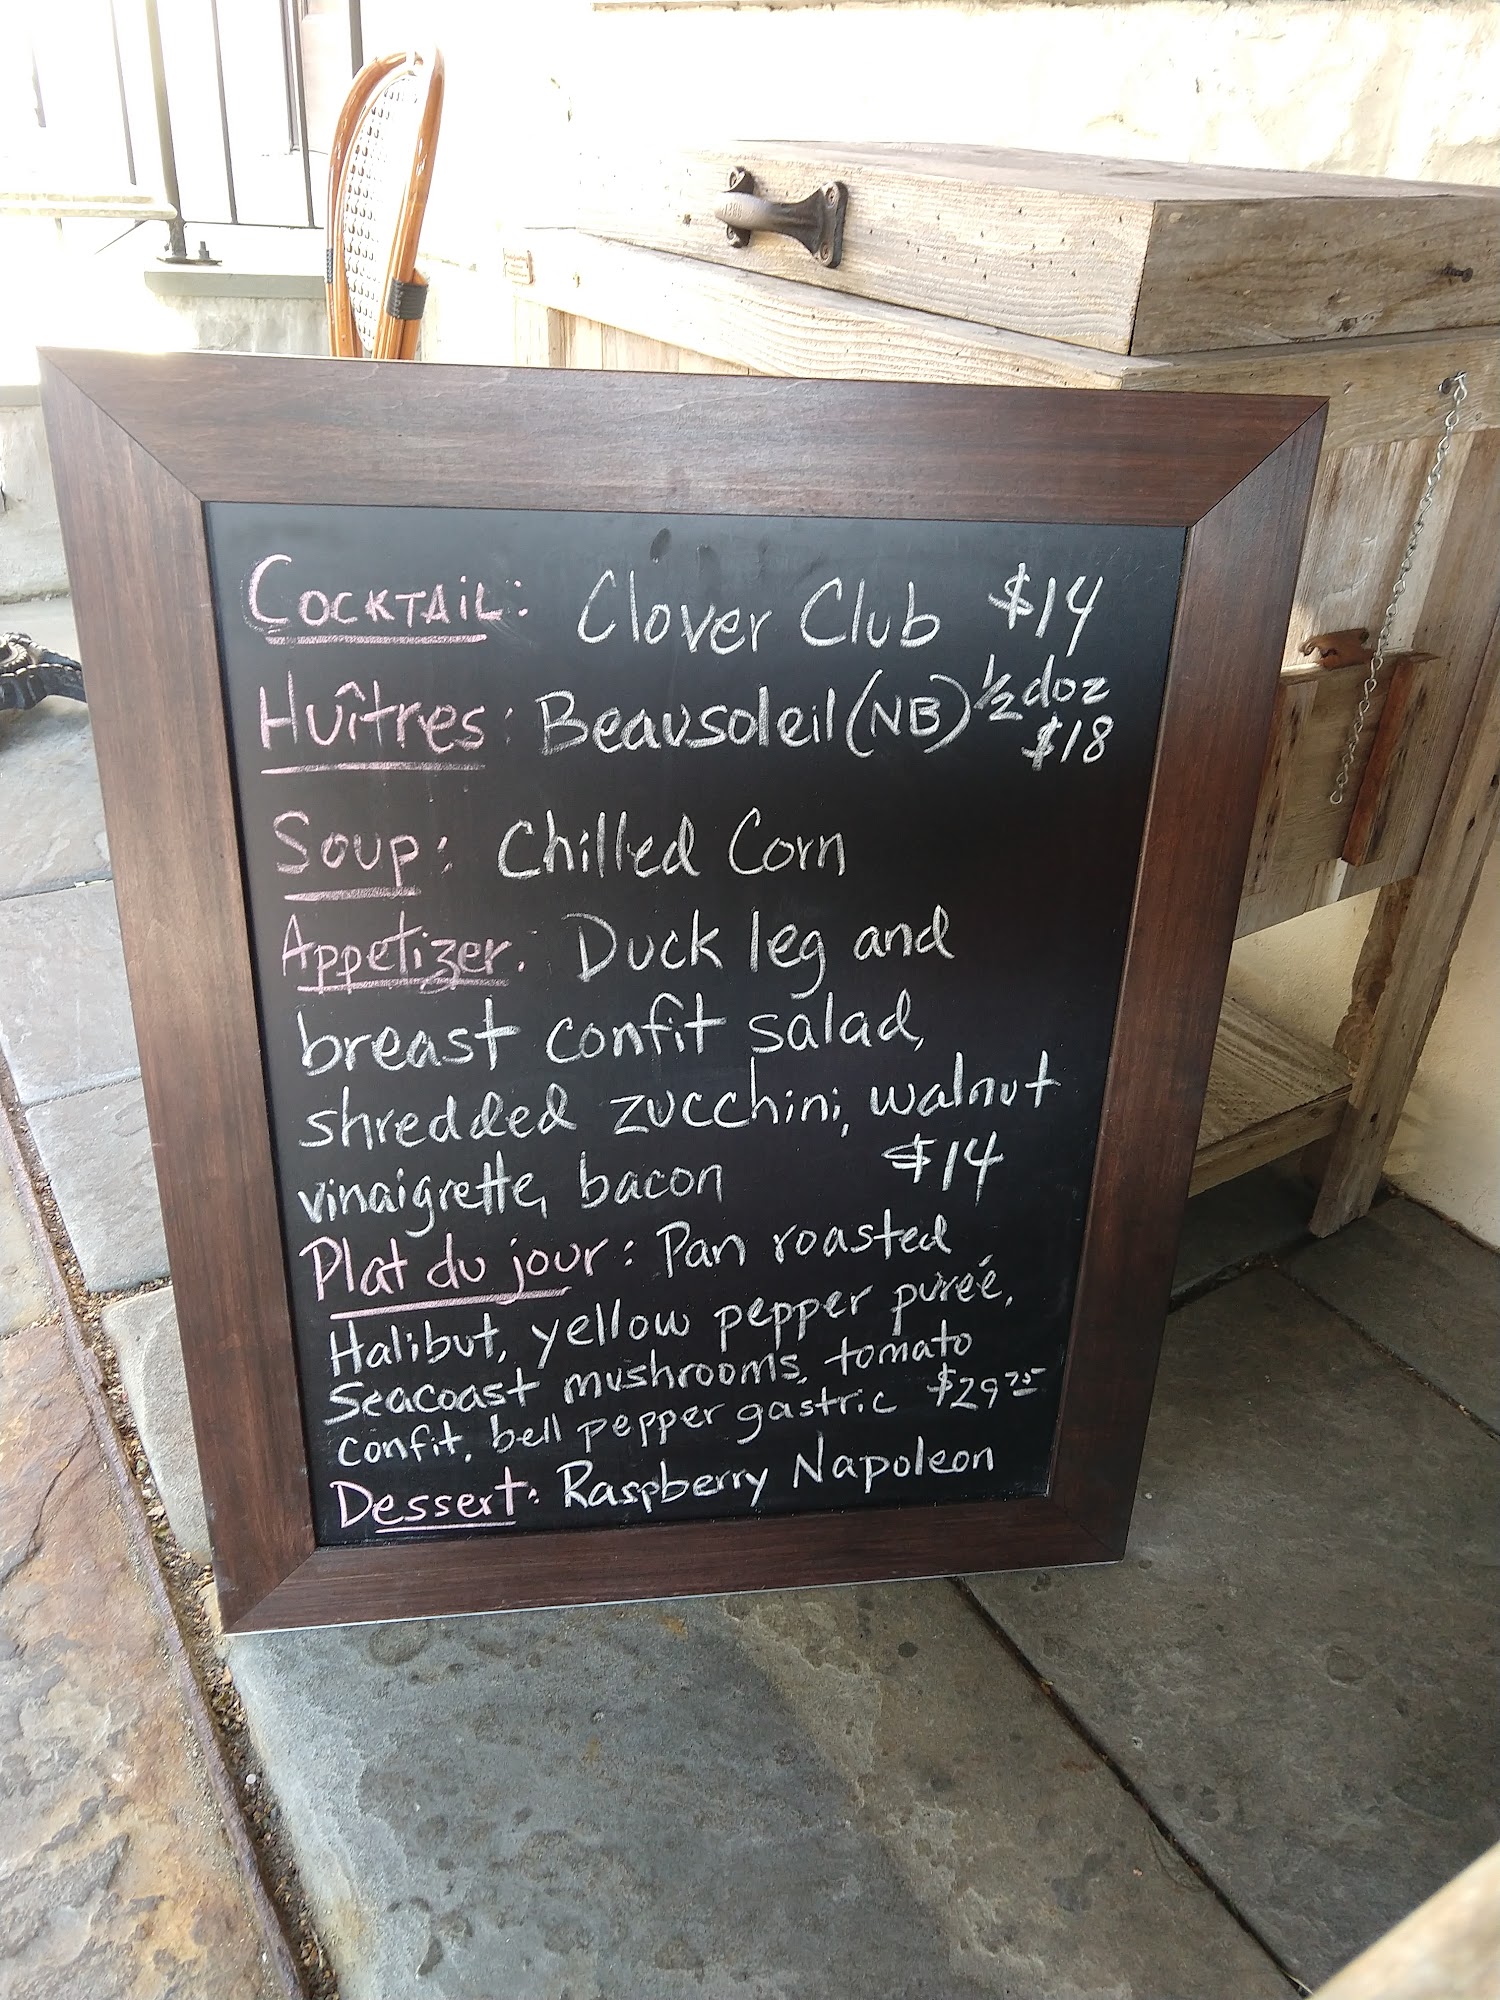 Cocktail: Clover Club $14
Huîtres: Beausoleil (NB) 1/2 doz
$18
Soup: Chilled Corn
Appetizer: Duck leg and
breast confit salad,
shredded zucchini, walnut
vinaigrette, bacon $14
Plat du jour: Pan roasted
Halibut, yellow pepper pureé,
Seacoast mushrooms, tomato
confit, bell pepper gastric $29.75
Dessert: Raspberry Napoleon